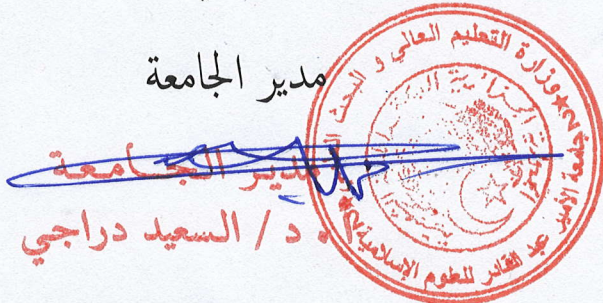 مدير الجامعة
مدير الجامعة
د / السعيد دراجي
وزارة التعليم العالي و البحث
جامعة الأمير عبد القادر للعلوم الإسلامية